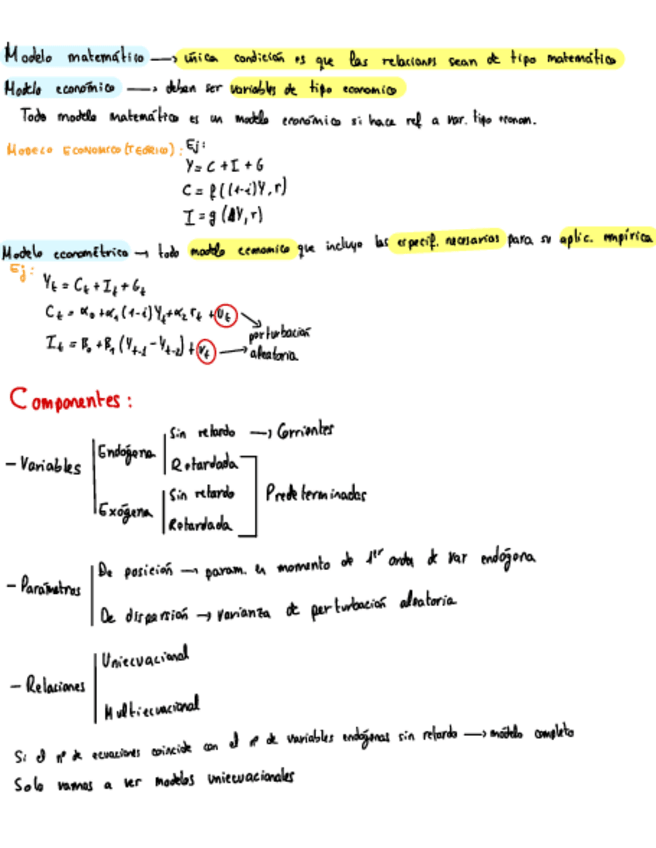 Modelo matemático → única condición es que las relaciones sean de tipo matemático
Modelo económico → deben ser variables de tipo economico
Todo modelo matemático es un modelo económico si hace ref a var. tipo econom.
MODELO ECONOMICO (TEÓRICO): Ej:
Y = C + I + G
C = f((1-i)Y, r)
I = g(ΔY, r)
Modelo econométrico → todo modelo economico que incluye las especif. necesarias para su aplic. empírica
Ej:
Yt = Ct + It + Gt
Ct = α0 + α1 (1-i) Yt + α2 rt + ut
perturbación
It = β0 + β1 (Yt-1 - Yt-2) + vt → aleatoria
Componentes:
Sin retardo → Corrientes
Endógena
- Variables
Retardada
Sin retardo
Predeterminadas
Exógena
Retardada
De posición → param. en momento de 1er orden de var endógena
- Parámetros
De dispersión → varianza de perturbación aleatoria
Uniecuacional
- Relaciones
Multiecuacional
Si el nº de ecuaciones coincide con el nº de variables endógenas sin retardo → modelo completo
Solo vamos a ver modelos uniecuacionales